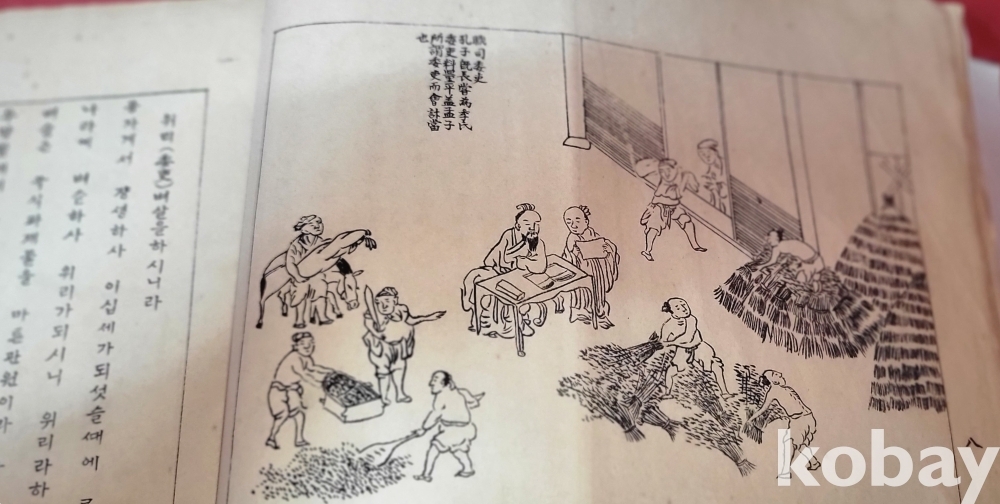 職司委吏
孔子旣長嘗爲季氏
委吏料量平盖孟子
所謂委吏而會計當
也
八
위리(委吏)벼살을하시니라
공자게서 장성하사 이십세가되섯슬때에
나라에 벼슬하사 위리가되시니 위리라하
벼슬은 곡식과재물을 마튼관원이라
kobay